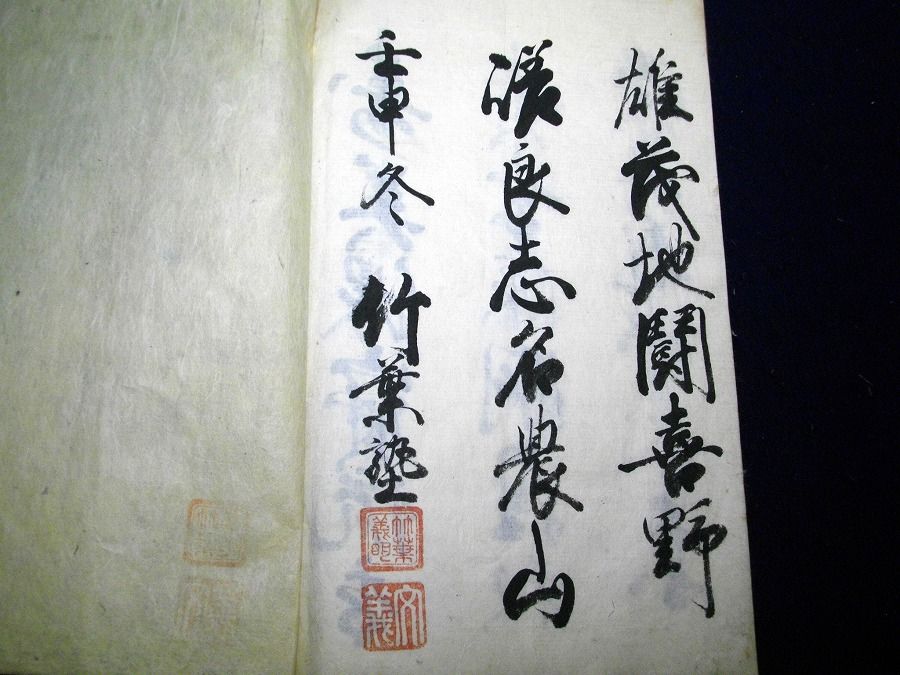 雄茂地鬪喜野
良志名農山
壬申冬 竹葉塾
竹葉義明
文義